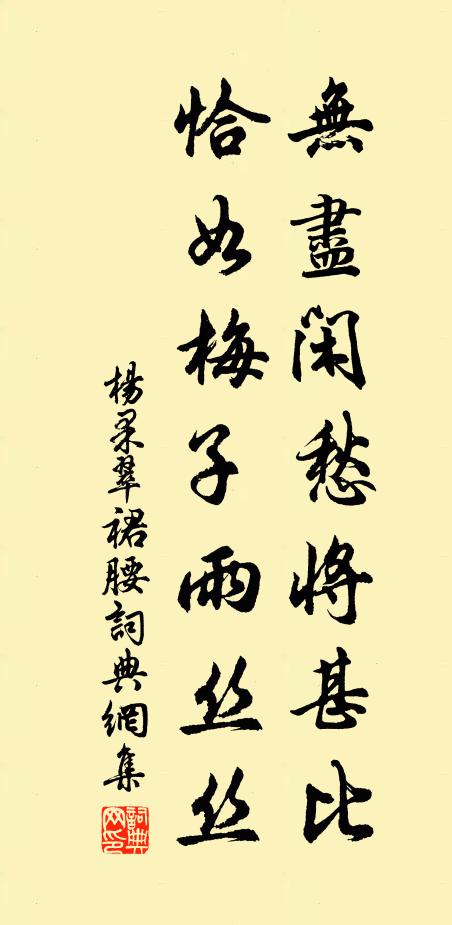 無盡閑愁將甚比
恰如梅子雨丝丝
楊果翠裙腰詞典網集
詞典网印